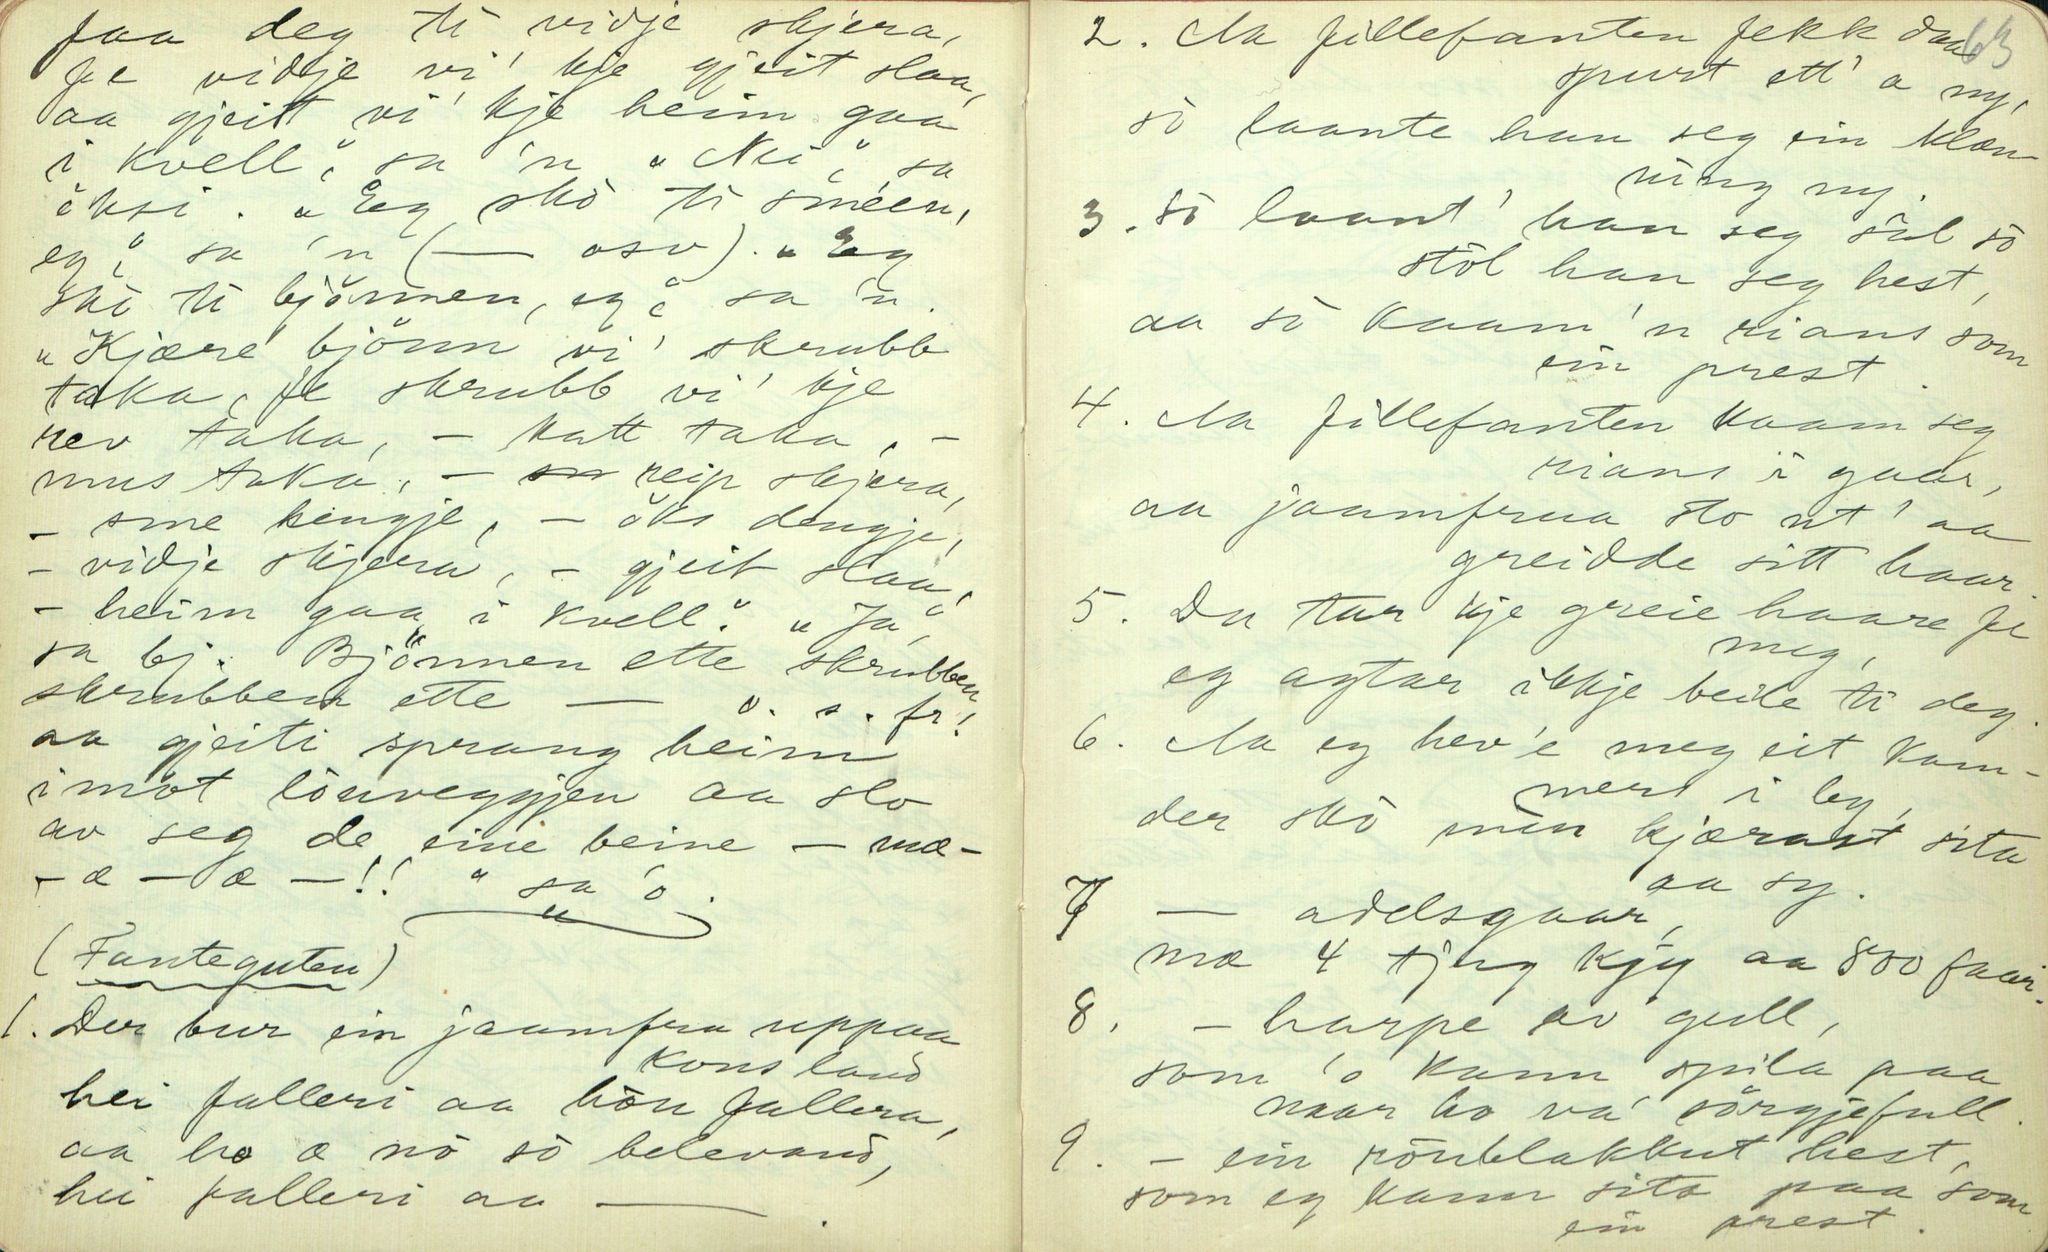 faa deg ti vidje skjera,
fe vidje vi' kje gjeit slaa,
aa gjeitt vi' kje heim gaa
i kvell", sa 'n. "Nei", sa
öksi. "Eg skò ti sméen,
eg", sa 'n (— osv). "Eg
skò ti bjönnen, eg", sa 'n.
"Kjære bjönn vi' skrubb
taka, fe skrubb vi' kje
rev taka, – katt taka, –
mus taka, – reip skjera,
– sme hengje, – öks dengje,
– vidje skjera, – gjeit slaa,
– heim gaa i kvell." "Ja",
sa bj. Bjönnen ette skrubben,
skrubben ette — o. s. fr!
aa gjeiti sprang heim
imòt löuveggjen aa slo
av seg de eine beine – mæ-
– æ – æ –!! " sa 'o.
(Fanteguten)
1. Der bur ein jaamfru uppaa
kons land
hei falleri aa hòn fallera,
aa ho æ nò sò belevand,
hei falleri aa — .
63
2. Aa fillefanten fekk daa
spurt ett' a ny,
sò laante han seg ein klæn-
ning ny.
3. Sò laant' han seg sàl sò
stòl han seg hest,
aa sò kaam 'n rians som
ein prest.
4. Aa fillefanten kaam seg
rians i gaar,
aa jaamfrua sto ut' aa
greidde sitt haar.
5. Du tar kje greie haare fe
meg,
eg agtar ikkje beile ti deg.
6. Aa eg hev'e meg eit kam-
mers i by,
der skò min kjærast sita
aa sy.
7 — adelsgaar,
mæ 4 tjug kjy aa 800 faar.
8. – harpe av gull,
som 'o kann spila paa
naar ho va' sörgjefull.
9. – ein rönblakkut hest,
som eg kann sita paa som
ein prest.